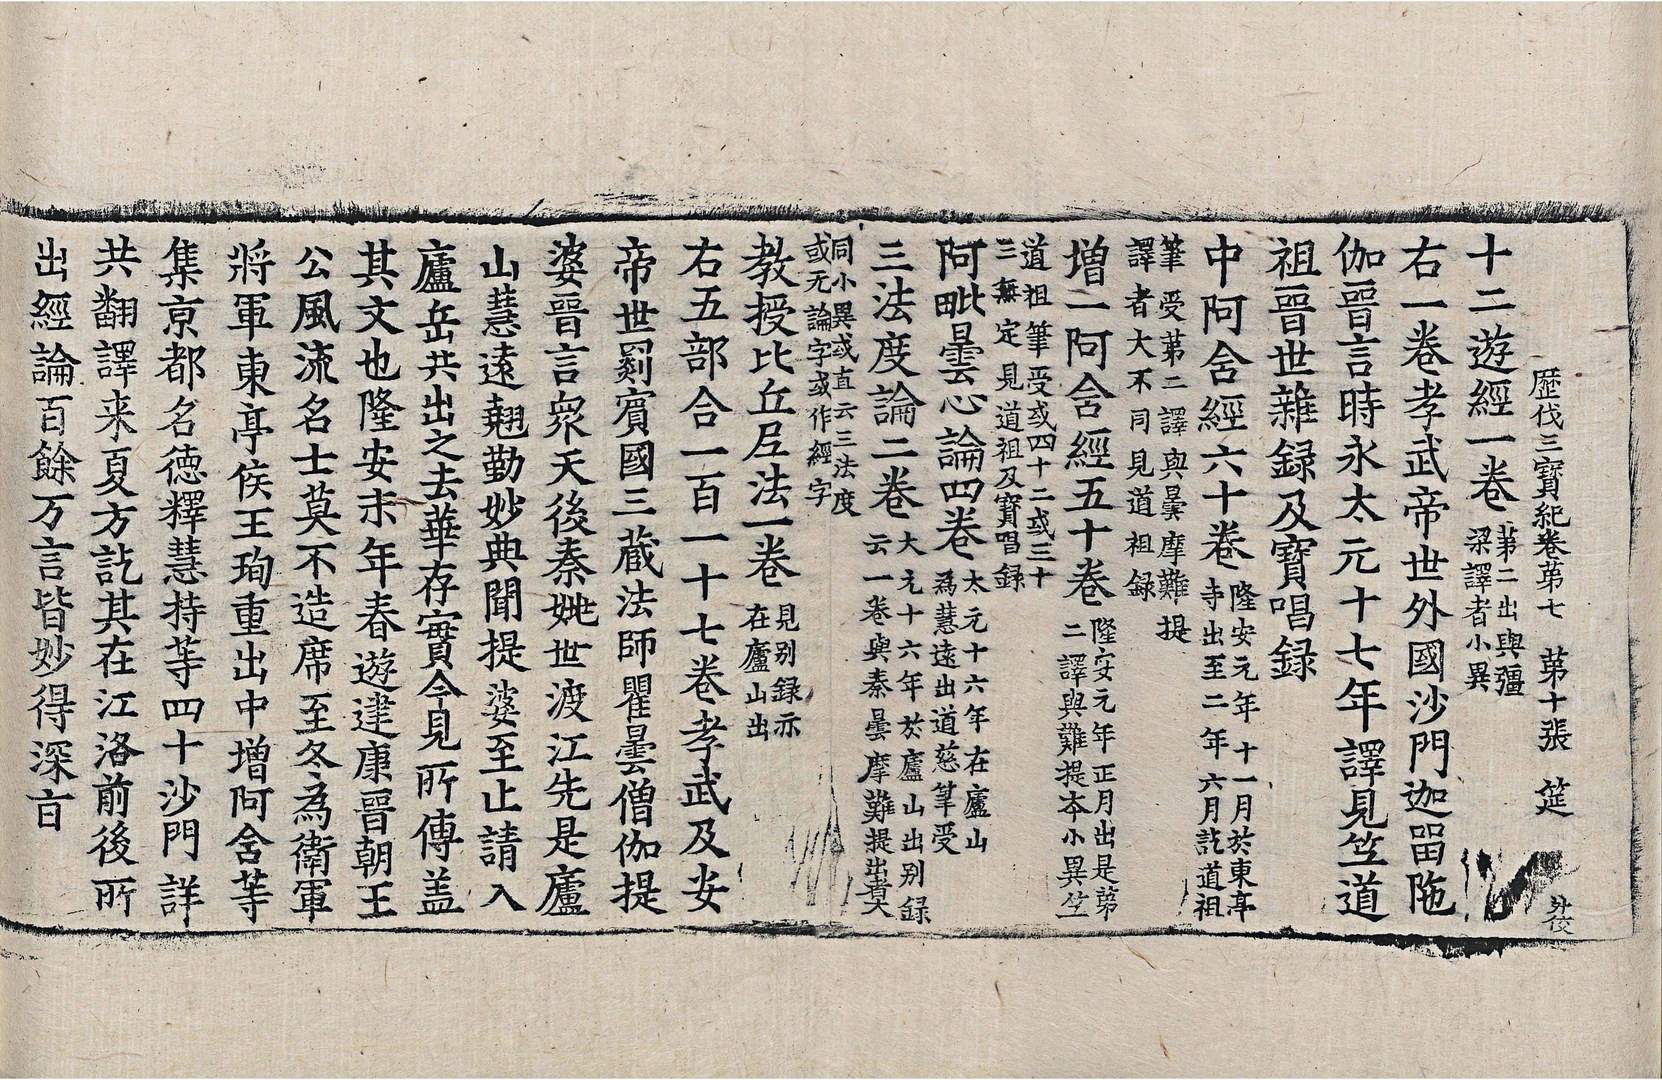 歷代三寶紀卷苐七　苐十張　筵
外校
十二遊經一卷苐二出與彊梁譯者小異
右一卷孝武帝世外國沙門迦留陁
伽晉言時永太元十七年譯見竺道
祖晉世雜録及寶唱録
中阿含經六十卷隆安元年十一月於東亭寺出至二年六月訖道祖
筆受苐二譯與曇摩難提譯者大不同見道祖録
增一阿含經五十卷隆安元年正月出是苐二譯與難提本小異竺
道祖筆受或四十二或三十三無定見道祖及寶唱録
阿毗曇心論四卷太元十六年在廬山為慧遠出道慈筆受
三法度論二卷太元十六年於廬山出別録云一卷與秦曇摩難提出者大
同小異或直云三法度或无論字或作經字
教授比丘尼法一卷見別録亦在廬山出
右五部合一百一十七卷孝武及安
帝世罽賓國三藏法師瞿曇僧伽提
婆晉言衆天後秦姚世渡江先是廬
山慧遠翹勤妙典聞提婆至止請入
廬岳共出之去華存實今見所傳盖
其文也隆安末年春遊建康晉朝王
公風流名士莫不造席至冬為衛軍
將軍東亭侯王珣重出中增阿含等
集京都名德釋慧持等四十沙門詳
共翻譯来夏方訖其在江洛前後所
出經論百餘万言皆妙得深㫖